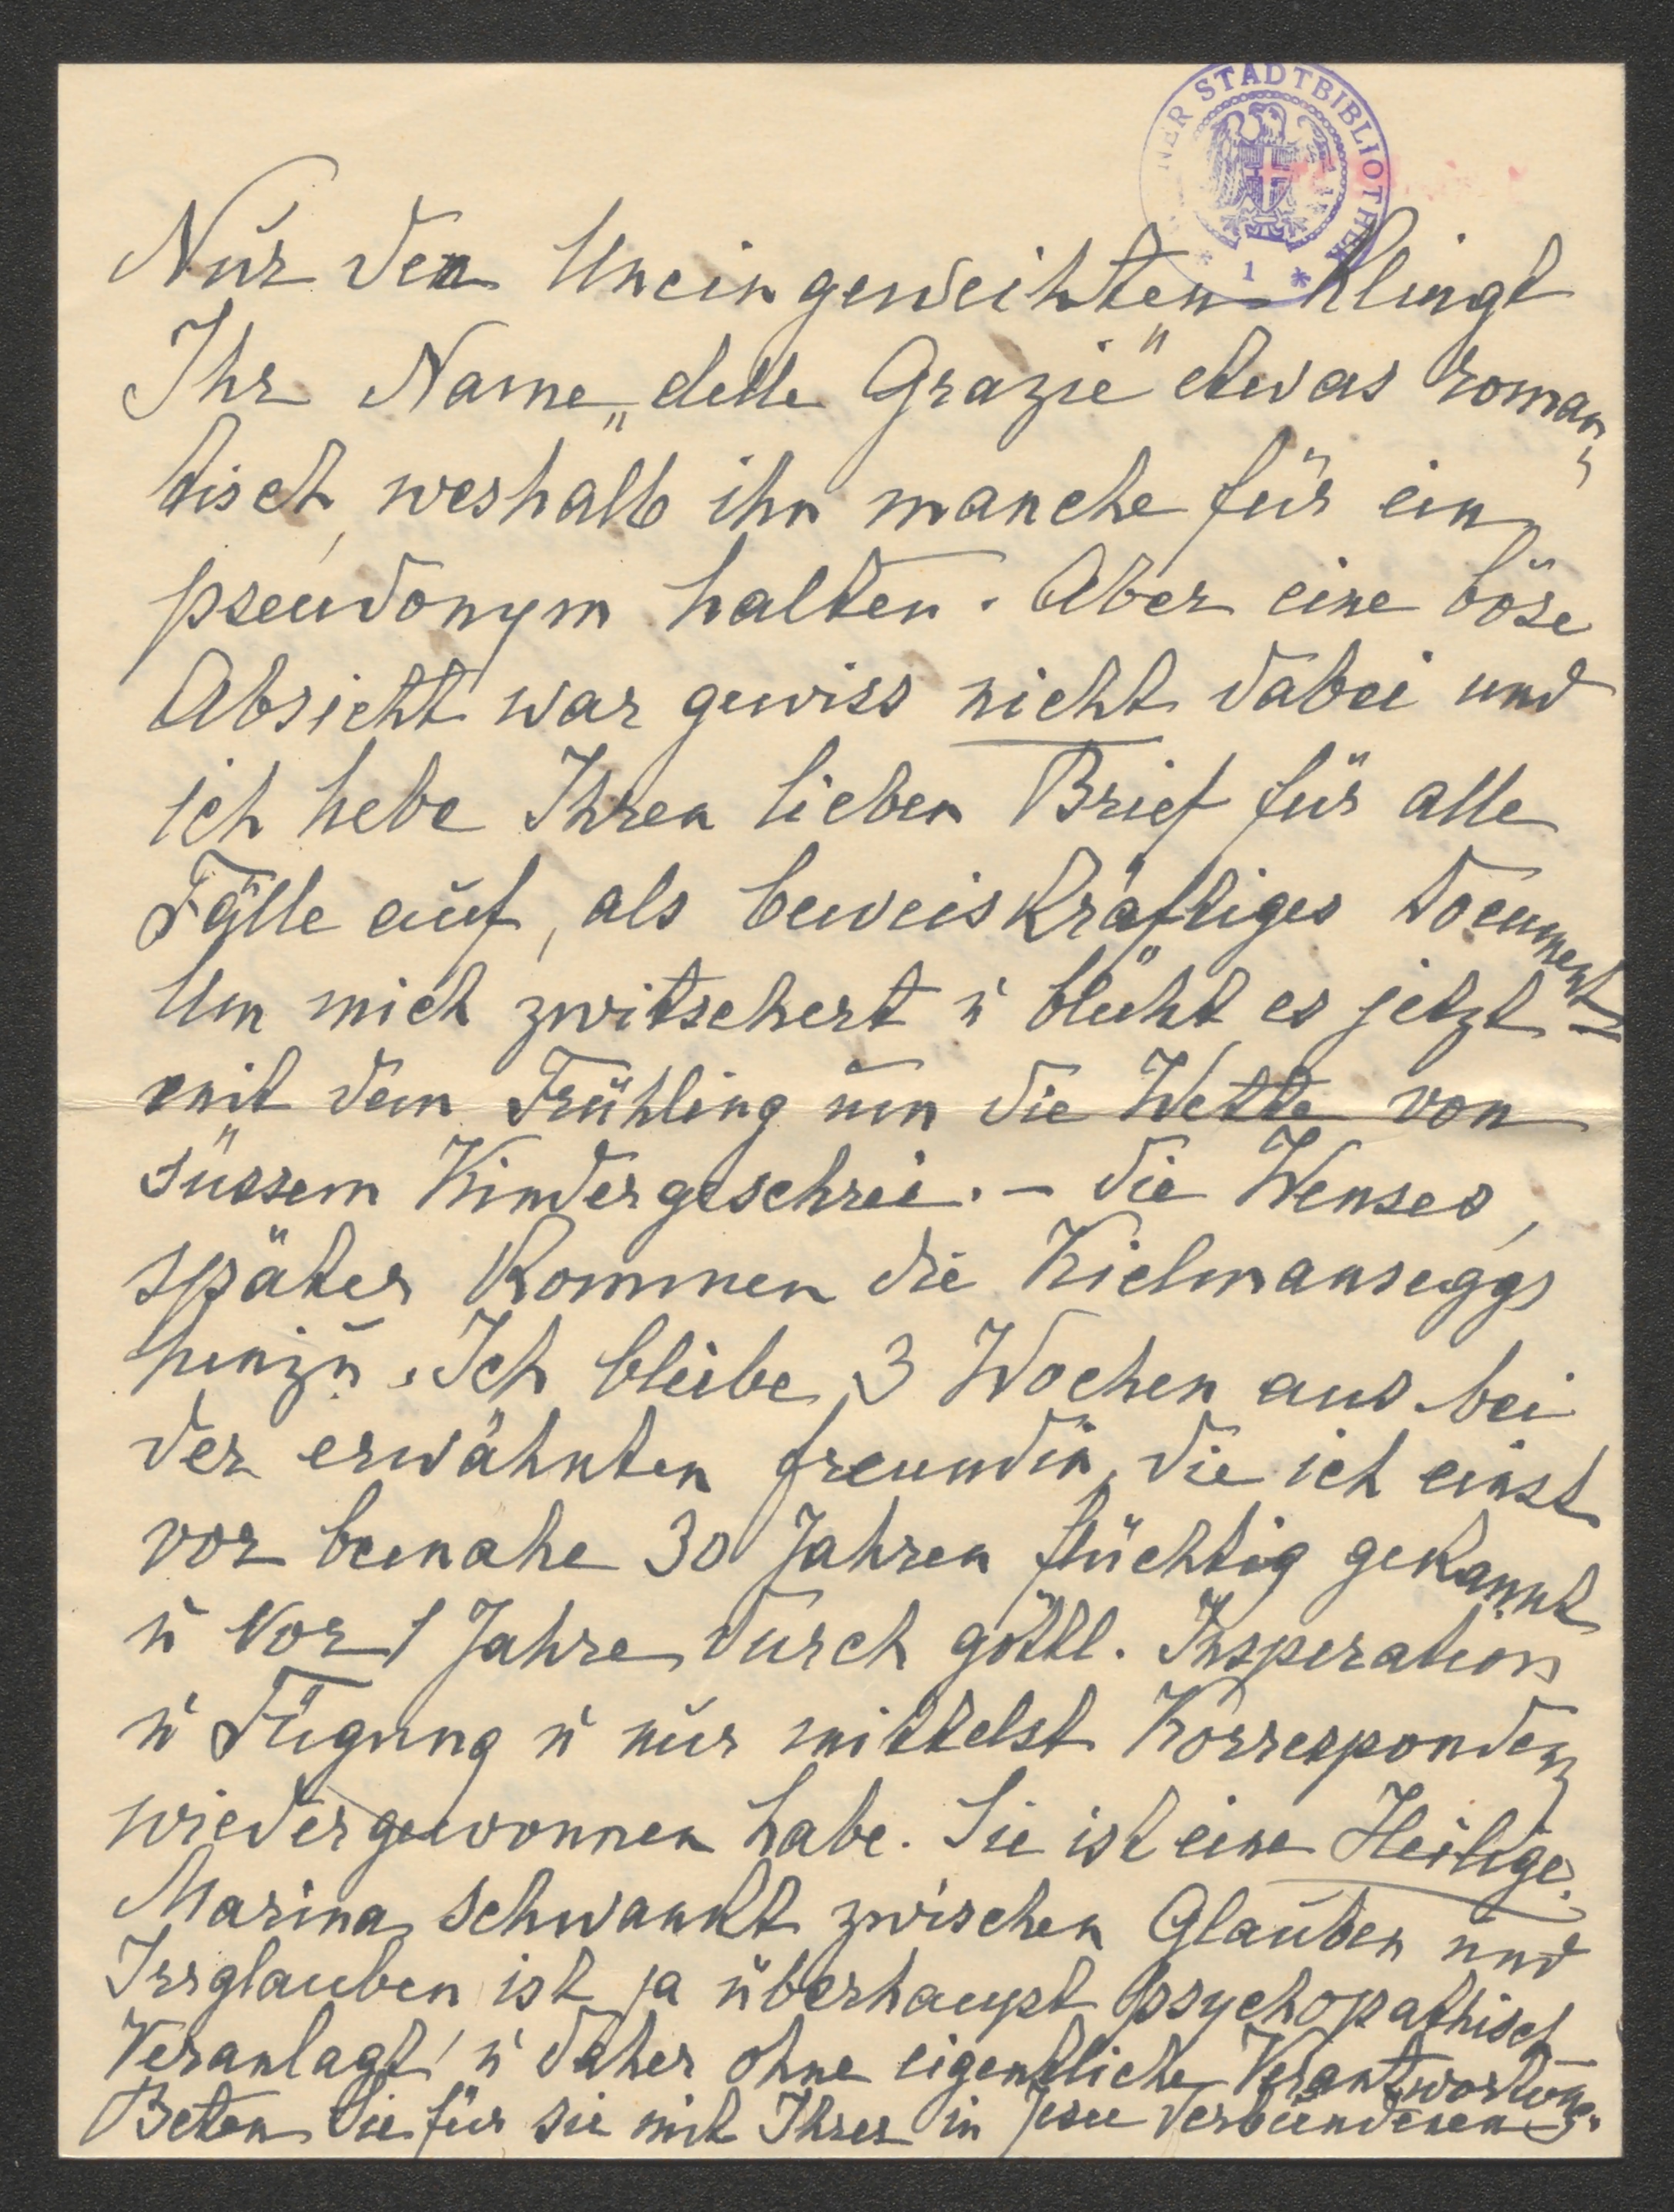 NER STADTBIBLIOTHEK
* 1 *
Nur den Uneingeweihten klingt
Ihr Name „delle Grazie" etwas roman-
tisch, weshalb ihn manche für ein
pseudonym halten. Aber eine böse
Absicht war gewiss nicht dabei und
ich hebe Ihren lieben Brief für alle
Fälle auf, als beweiskräftiges Document
Um mich zwitschert u blüht es jetzt –
mit dem Frühling um die Wette von
süssem Kindergeschrei. – die Wenses,
später kommen die Kielmanseggs
hinzu. Ich bleibe 3 Wochen aus bei
der erwähnten freundin, die ich einst
vor beinahe 30 Jahren flüchtig gekannt
u vor 1 Jahre durch göttl. Insperation
u Fügung u nur mittelst Korrespondenz
wiedergewonnen habe. Sie ist eine Heilige.
Marina schwankt zwischen Glauben und
Irrglauben, ist ja überhaupt psychopathisch
Veranlagt! u daher ohne eigentliche Verantwortung.
Beten Sie für sie mit Ihrer in Jesu Verbundenen